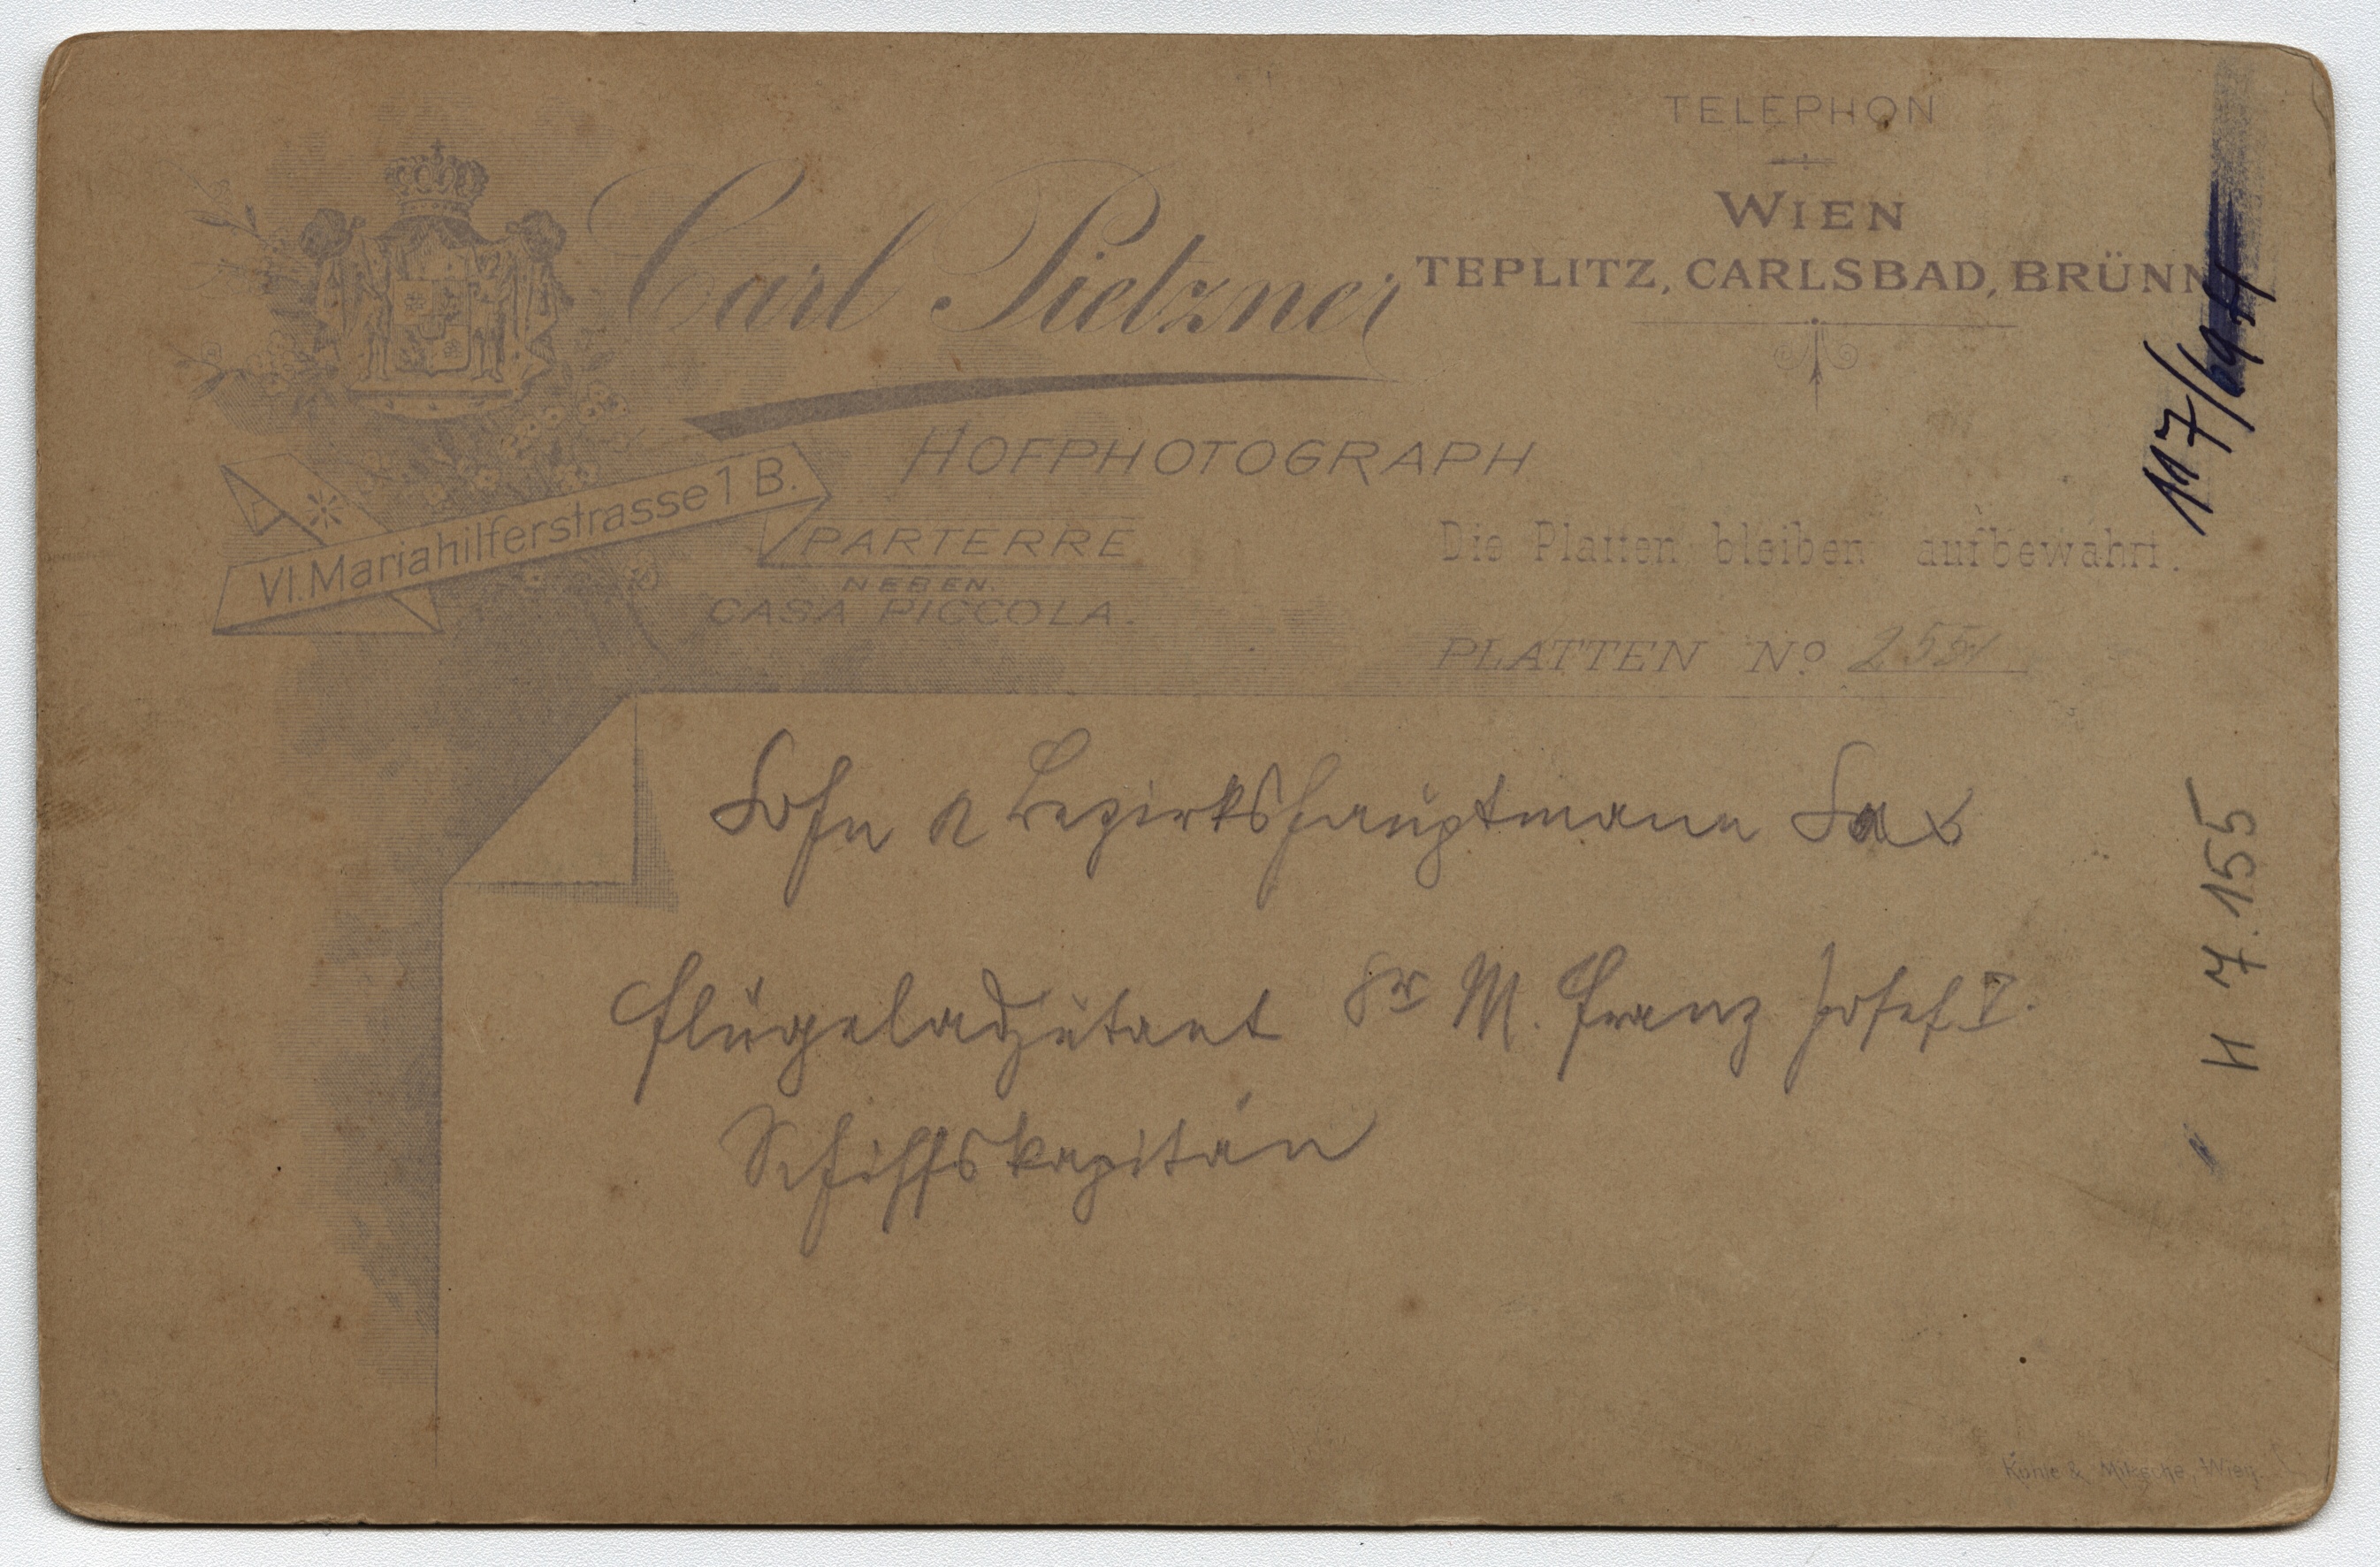 TELEPHON
WIEN
TEPLITZ, CARLSBAD, BRÜNN
Carl Pietzner
HOFPHOTOGRAPH
VI. Mariahilferstrasse 1 B.
PARTERRE
NEBEN.
CASA PICCOLA.
Die Platten bleiben aufbewahrt.
PLATTEN No
Sohn d Bezirkshauptmann Sax
Flügeladjutant Sr M. Franz Josef I.
Schiffskapitän
117/694
H 7.155
Wien.